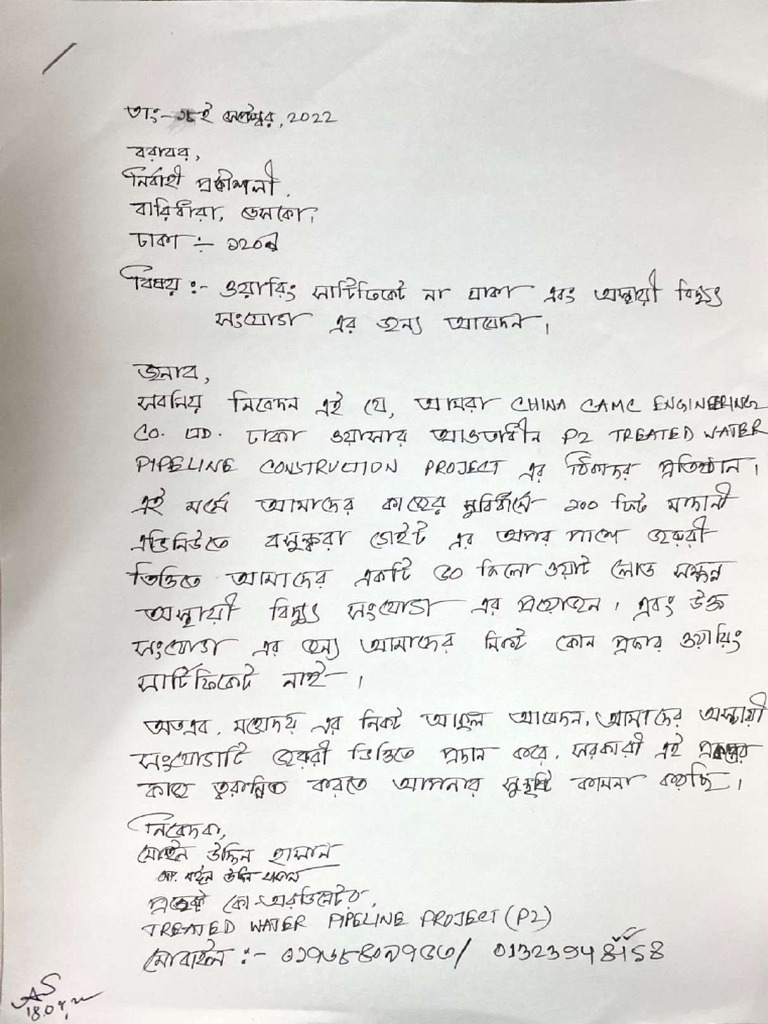 তাং:- ই সেপ্টেম্বর, 2022
বরাবর,
নির্বাহী প্রকৌশলী,
বারিধারা, ডেসকো,
ঢাকা :-
বিষয় :- ওয়ারিং সার্টিফিকেট না থাকা এবং অস্থায়ী বিদ্যুৎ
সংযোগ এর জন্য আবেদন।
জনাব,
সবিনয় নিবেদন এই যে, আমরা CHINA CAMC ENGINEERING
CO. LTD. ঢাকা ওয়াসার আওতাধীন P2 TREATED WATER
PIPELINE CONSTRUCTION PROJECT এর ঠিকাদার প্রতিষ্ঠান।
এই মর্মে আমাদের কাজের সুবিধার্থে ১০০ ফিট মাদানী
এভিনিউতে বসুন্ধরা গেইট এর অপর পাশে জরুরী
ভিত্তিতে আমাদের একটি ৬০ কিলো ওয়াট লোড সম্পন্ন
অস্থায়ী বিদ্যুৎ সংযোগ এর প্রয়োজন। এবং উক্ত
সংযোগ এর জন্য আমাদের নিকট কোন প্রকার ওয়ারিং
সার্টিফিকেট নাই।
অতএব, মহোদয় এর নিকট আকুল আবেদন, আমাদের অস্থায়ী
সংযোগটি জরুরী ভিত্তিতে প্রদান করে, সরকারী এই প্রকল্পের
কাজ ত্বরান্বিত করতে আপনার সুদৃষ্টি কামনা করছি।
নিবেদক,
উদ্দিন হাসান
প্রজেক্ট কো-অরডিনেটর,
TREATED WATER PIPELINE PROJECT (P2)
মোবাইল :-